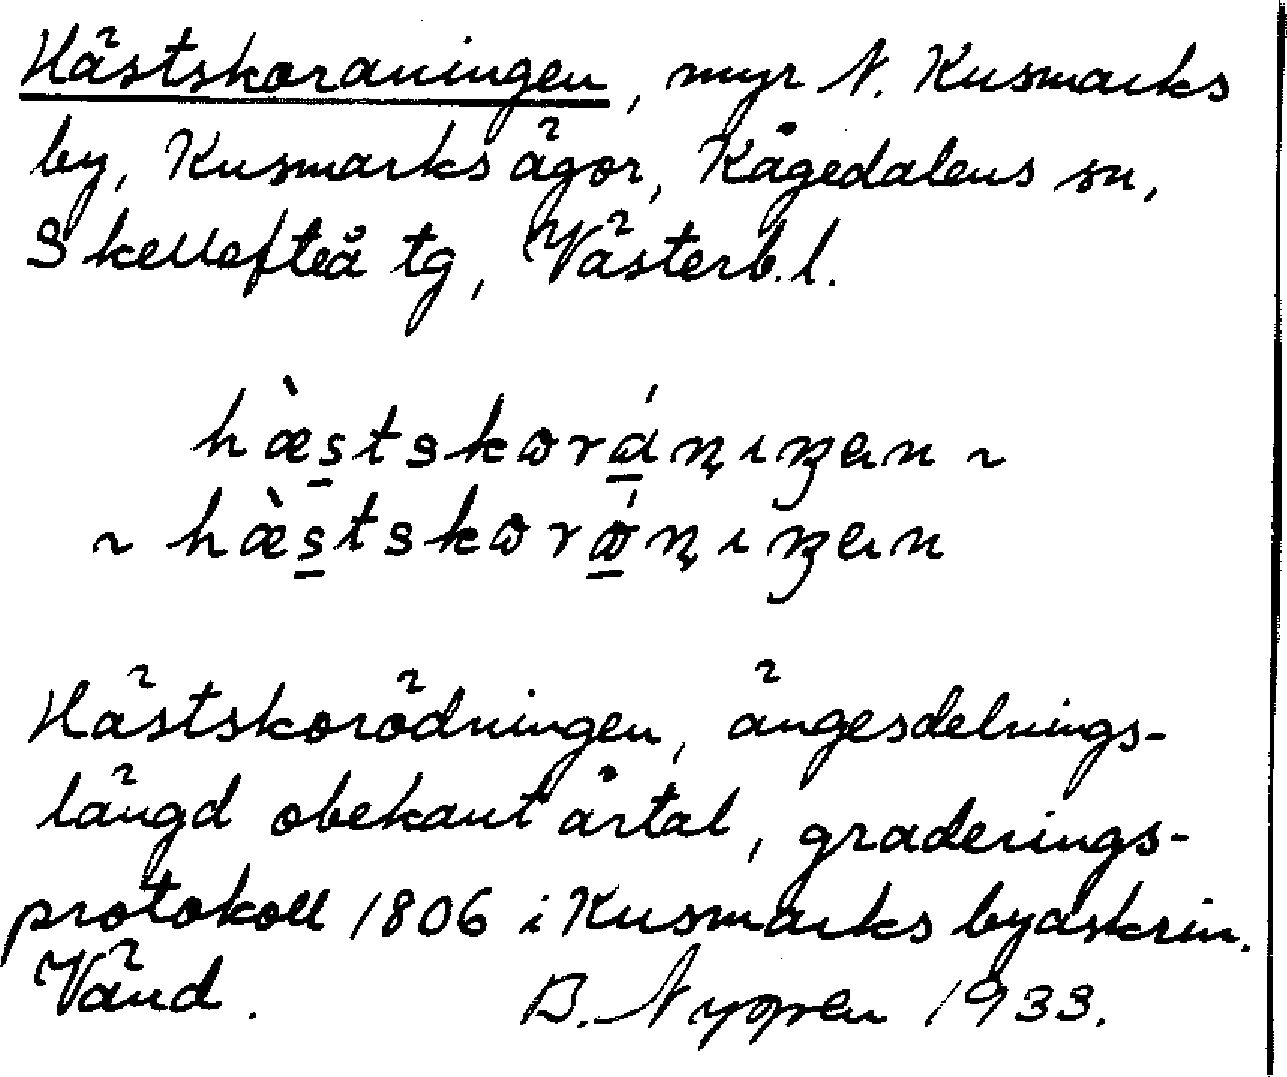 Hästskoraningen, myr N. Kusmarks
by, Kusmarks ägor, Kågedalens sn,
Skellefteå tg, Västerb.l.
hæ̀s̲tskωrá̲ṇıŋen ~
~ hæ̀s̲tskωrώ̲ṇıŋen
Hästskorödningen, ängesdelnings-
längd obekant årtal, graderings-
protokoll 1806 i Kusmarks byaskrin.
Vänd. B. Nygren 1933.